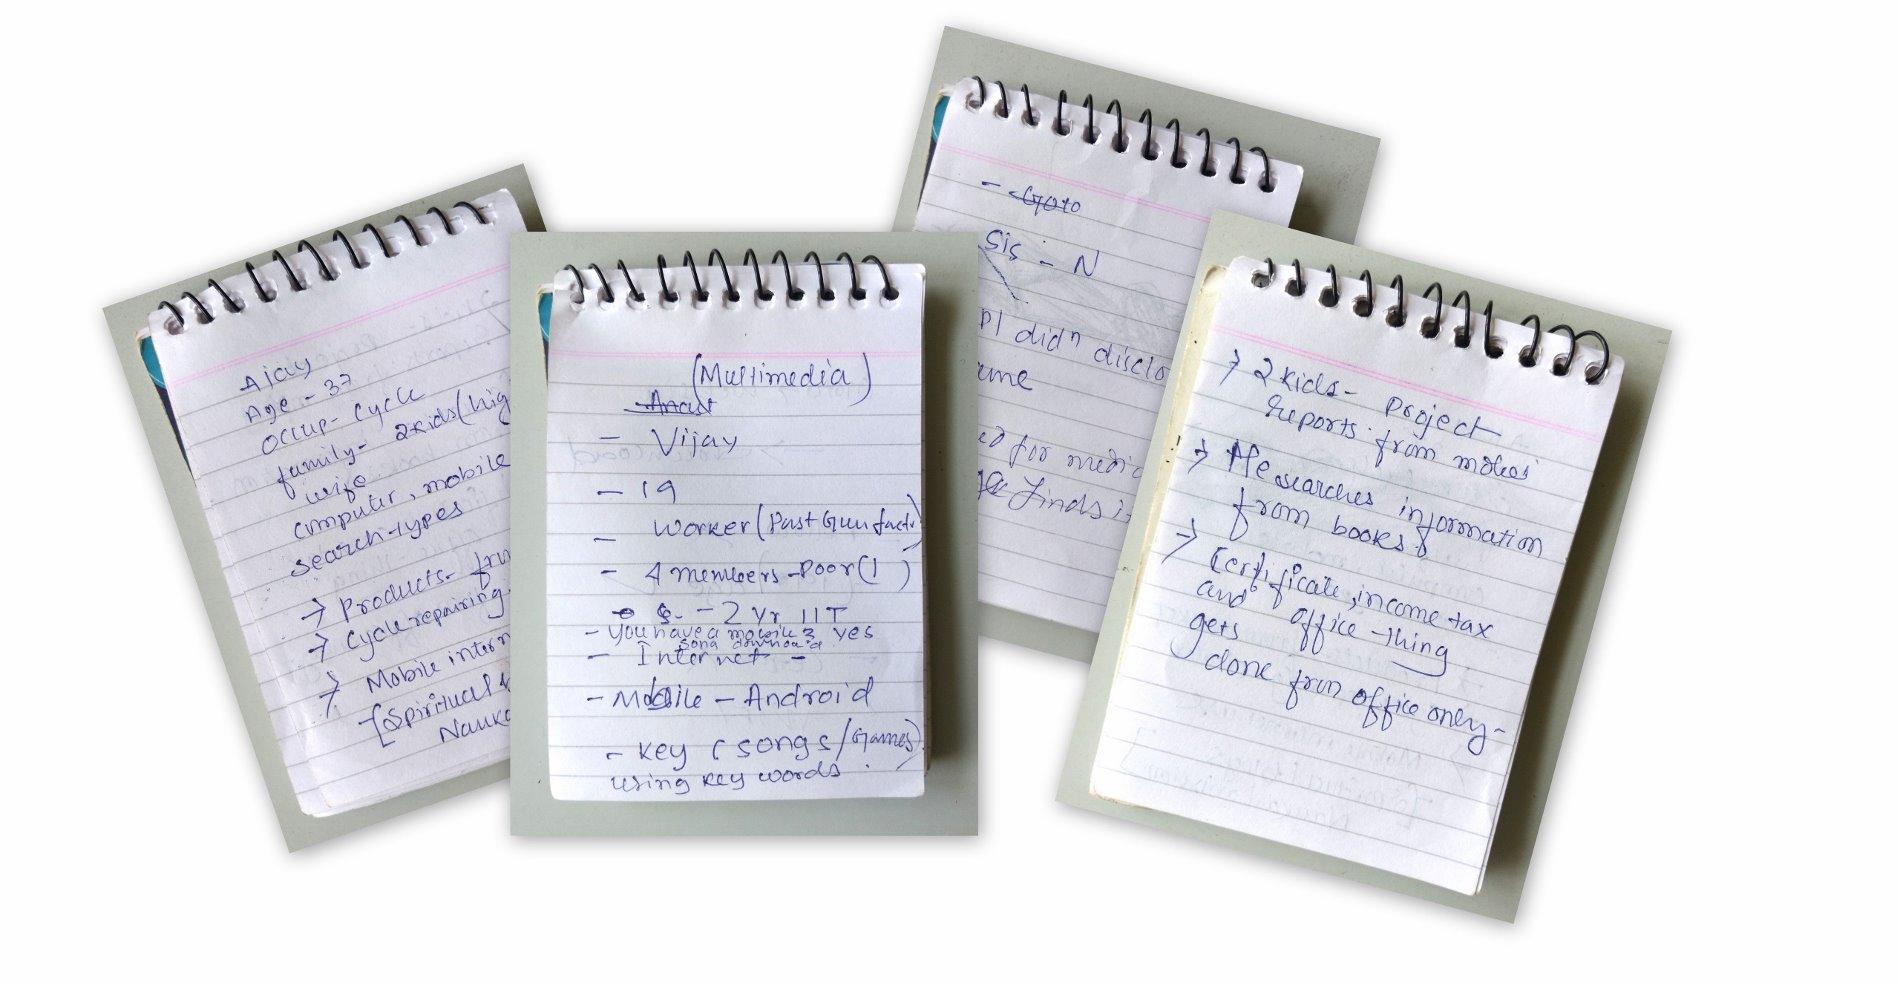 Ajay
Age - 37
occup- cycle
family- 2kids(hig
wife
computer, mobile
search-types
→ Products-
→ cycle repairing.
→ Mobile intern
[Spiritual
(Multimedia)
- Vijay
- 19
- worker(Past Gun fact
- 4 members-Poor(1)
- 2 Yr IIT
- you have a mobile? yes
- Internet -
- Mobile - Android
- key (songs/Games)
using key words
- Goto
Sis - N
didn disclo
ed for medic
finds i
→ 2 kids- project
reports from
→ He searches information
from books.
→ Certificate, income tax
and office thing
gets
done from office only-